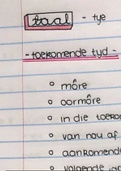 taal - tye
- toekomende tyd -
o môre
o oormôre
o in die toekom
o van nou af
o aankomende
o volgende